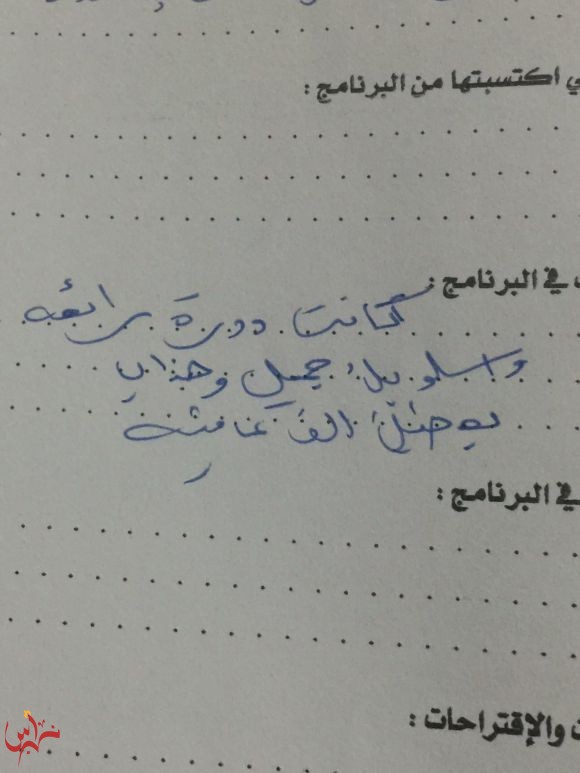 ي اكتسبتها من البرنامج :
في البرنامج :
كانت دورة رائعه
واسلوبك جميل وجذاب
الف عافيه
في البرنامج :
والإقتراحات :
نبراس